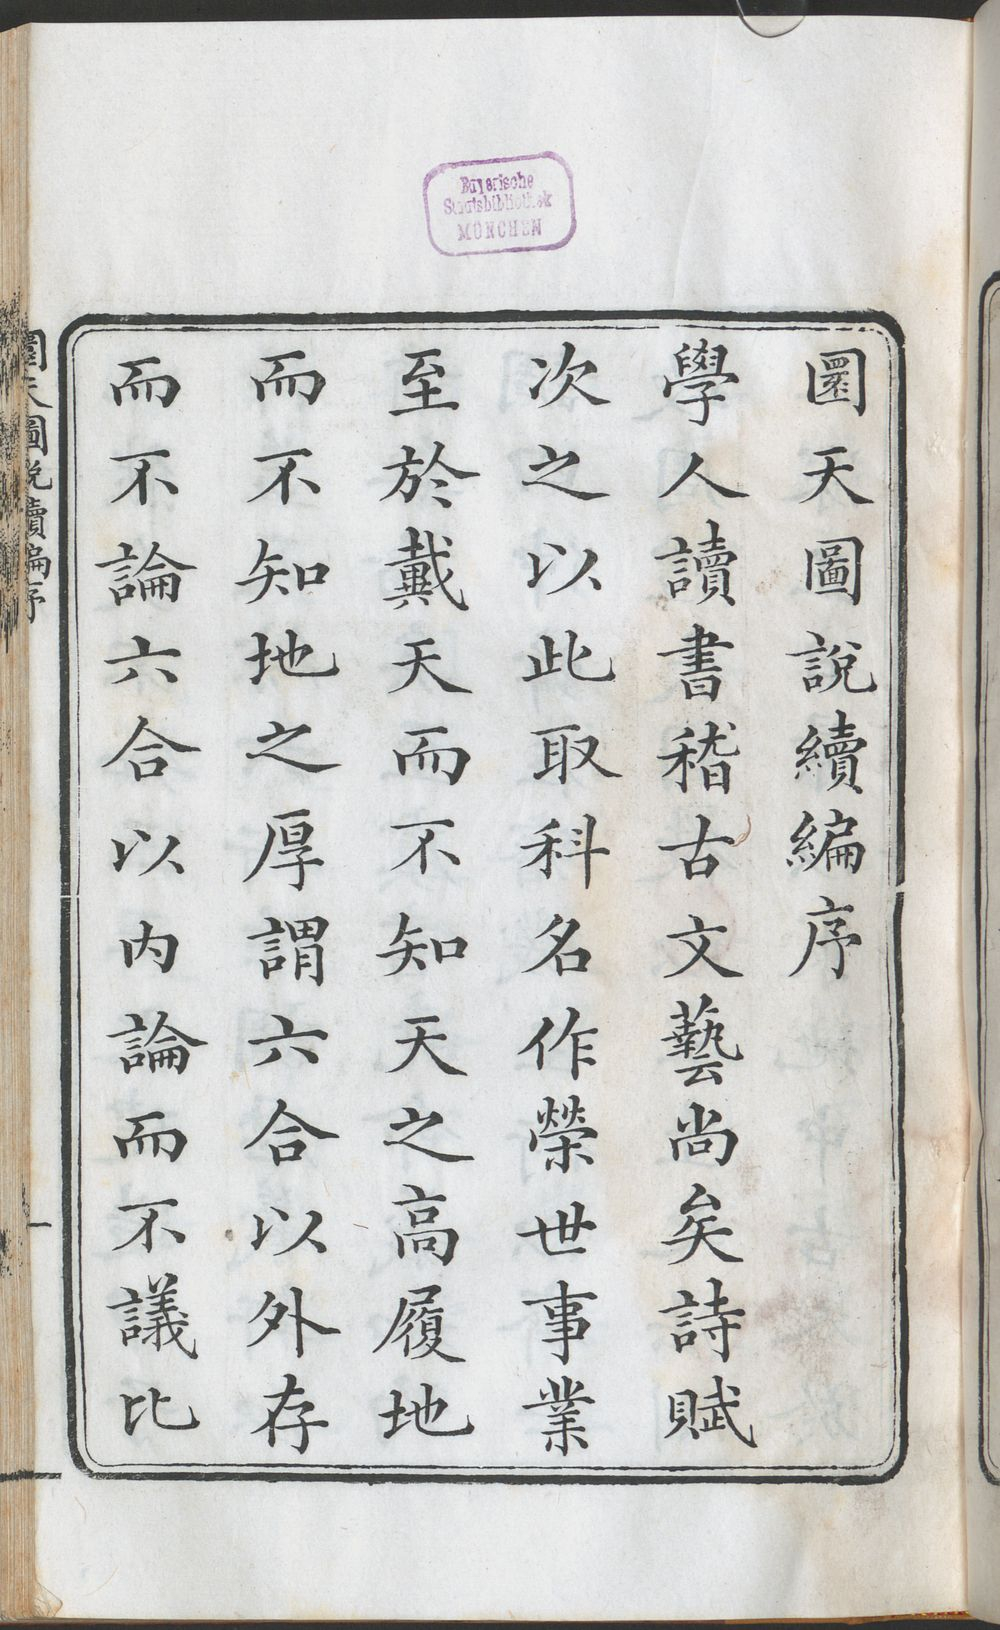 圜天圖說續編序
學人讀書稽古文藝尚矣詩賦
次之以此取科名作榮世事業
至於戴天而不知天之高履地
而不知地之厚謂六合以外存
而不論六合以內論而不議比
圜天圖說續編序
一
Bayerische
Staatsbibliothek
MÜNCHEN